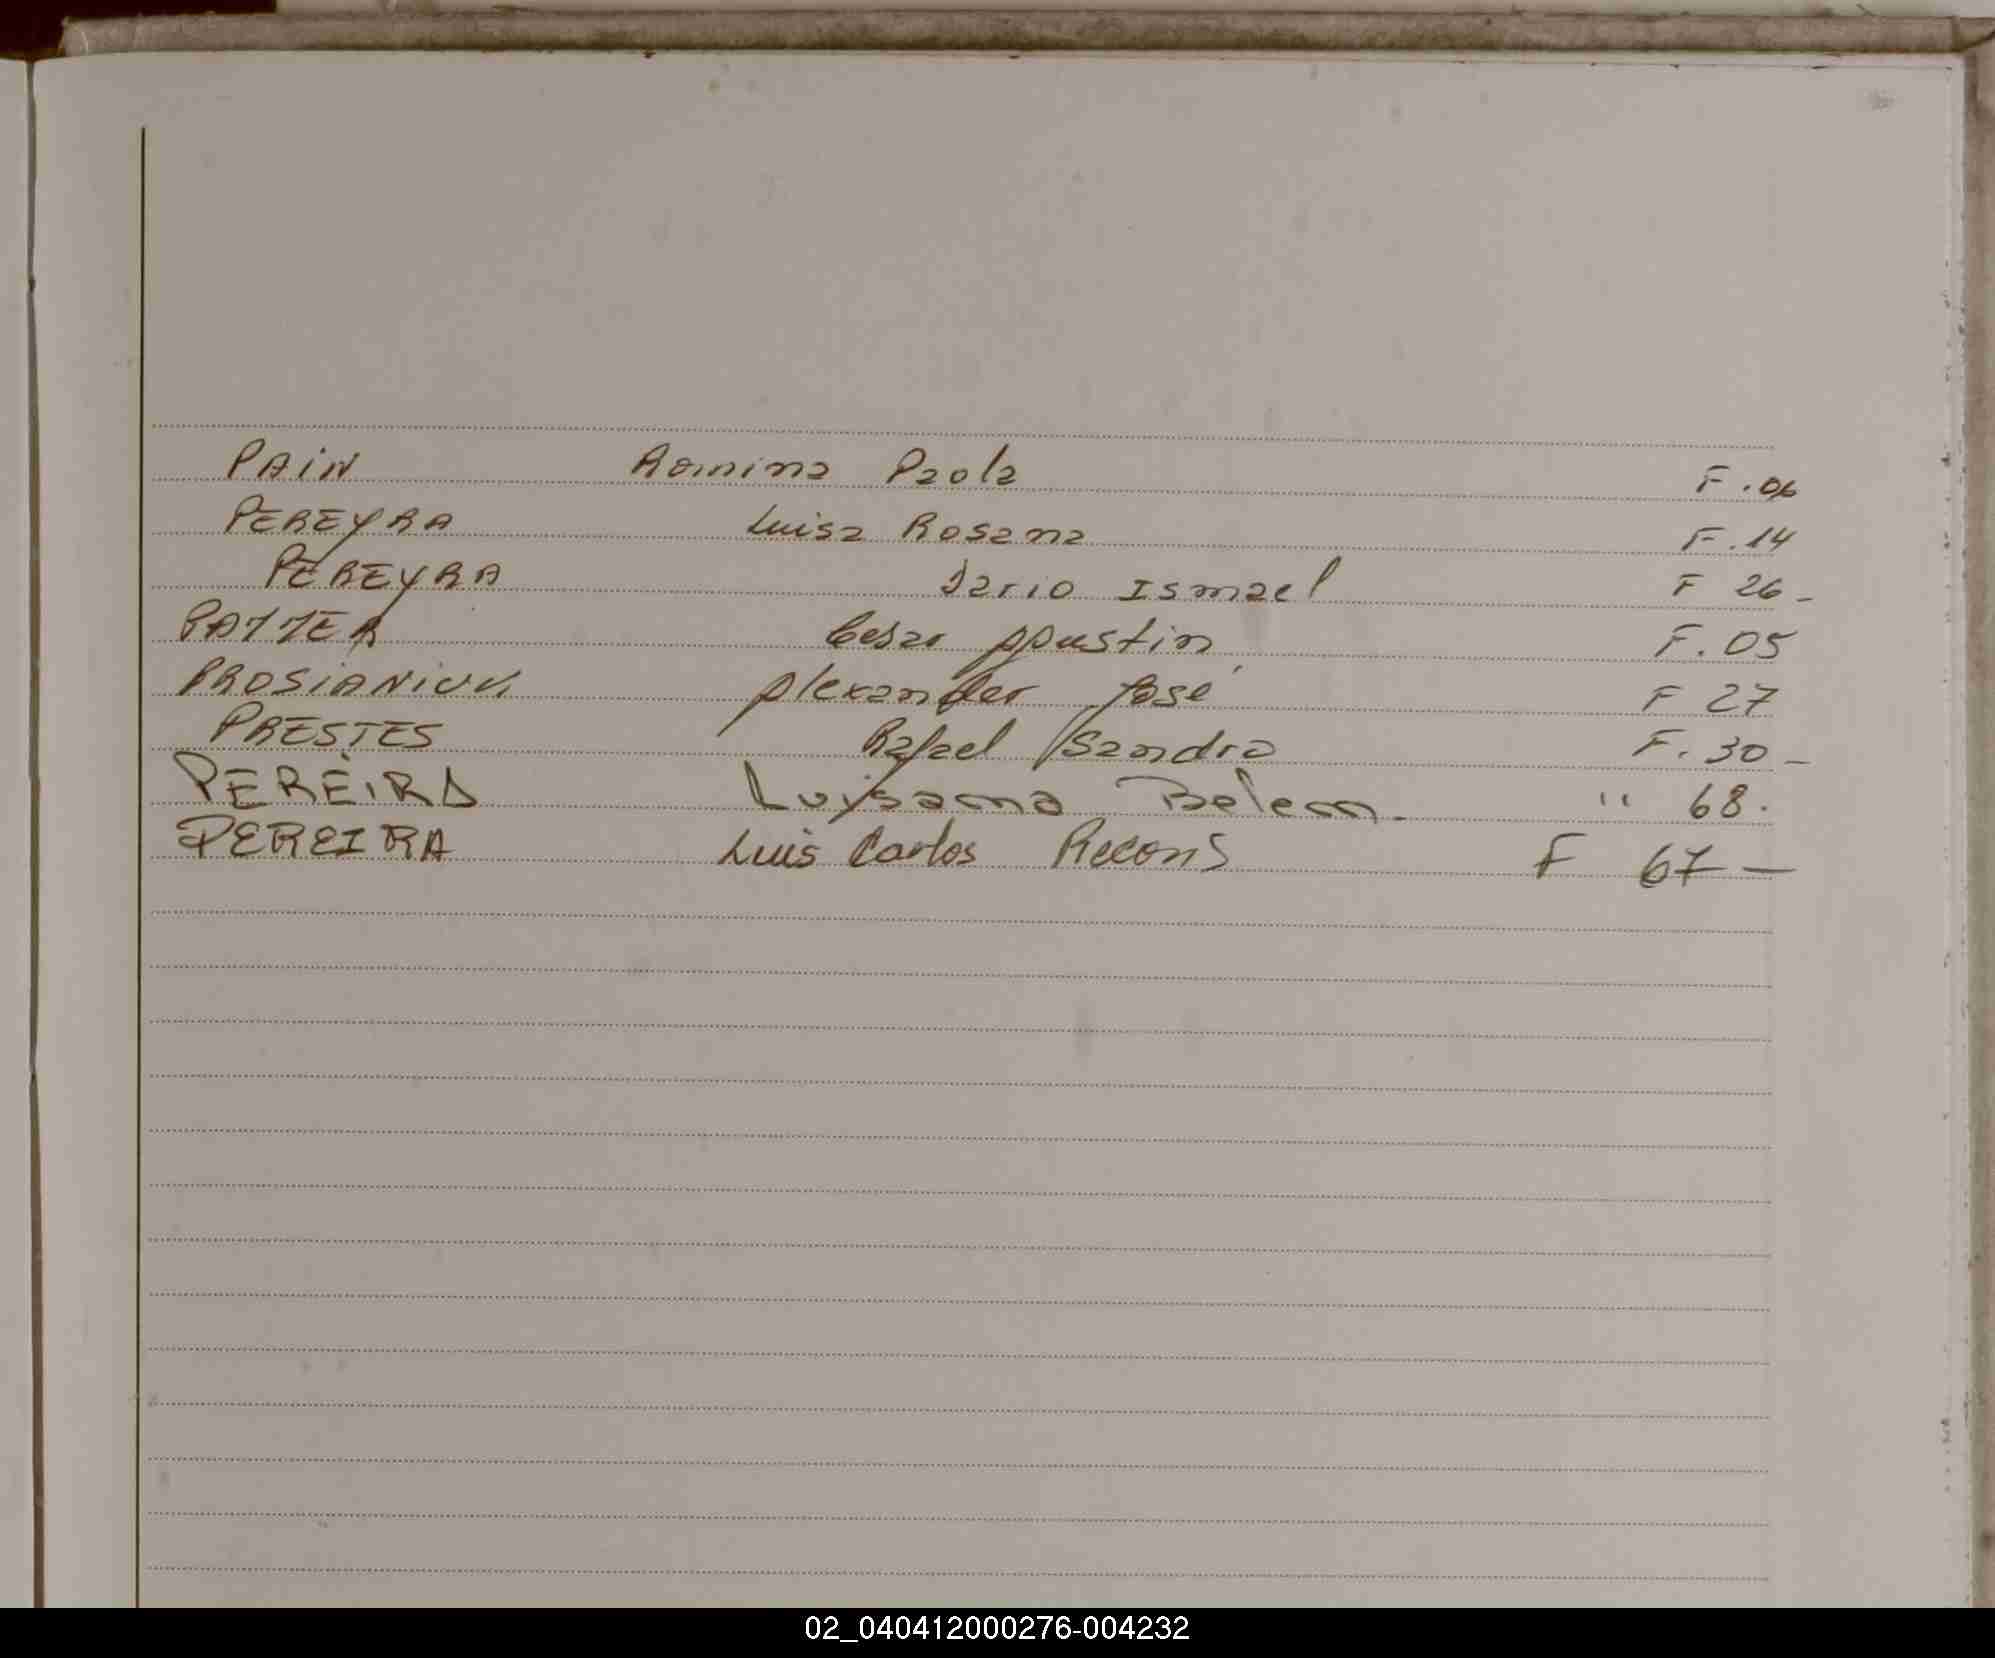 PAIN Romina Paola F.06
PEREYRA Luisa Rosana F.14
PEREYRA Dario Ismael F 26-
PATZER Cesar Agustin F.05
PROSIANIUK Alexander José F 27
PRESTES Rafael Sandro F.30-
PEREIRA Luysama Belem. " 68.
PEREIRA Luis Carlos Recons F 67-
02_040412000276-004232